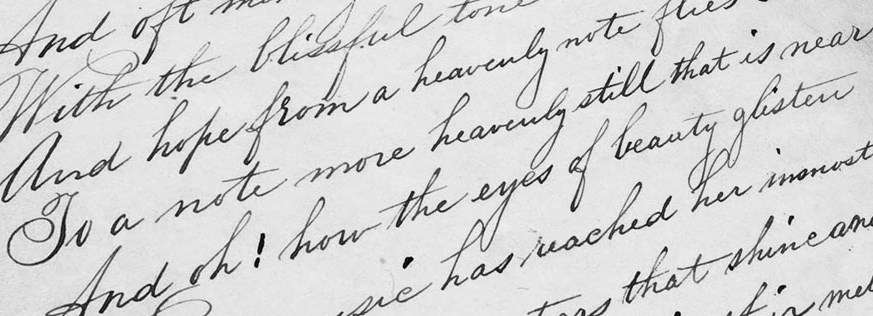 And oft
With the blissful tone
And hope from a heavenly note flies
To a note more heavenly still that is near
And oh! how the eyes of beauty glisten
has reached her inmost
that shine and